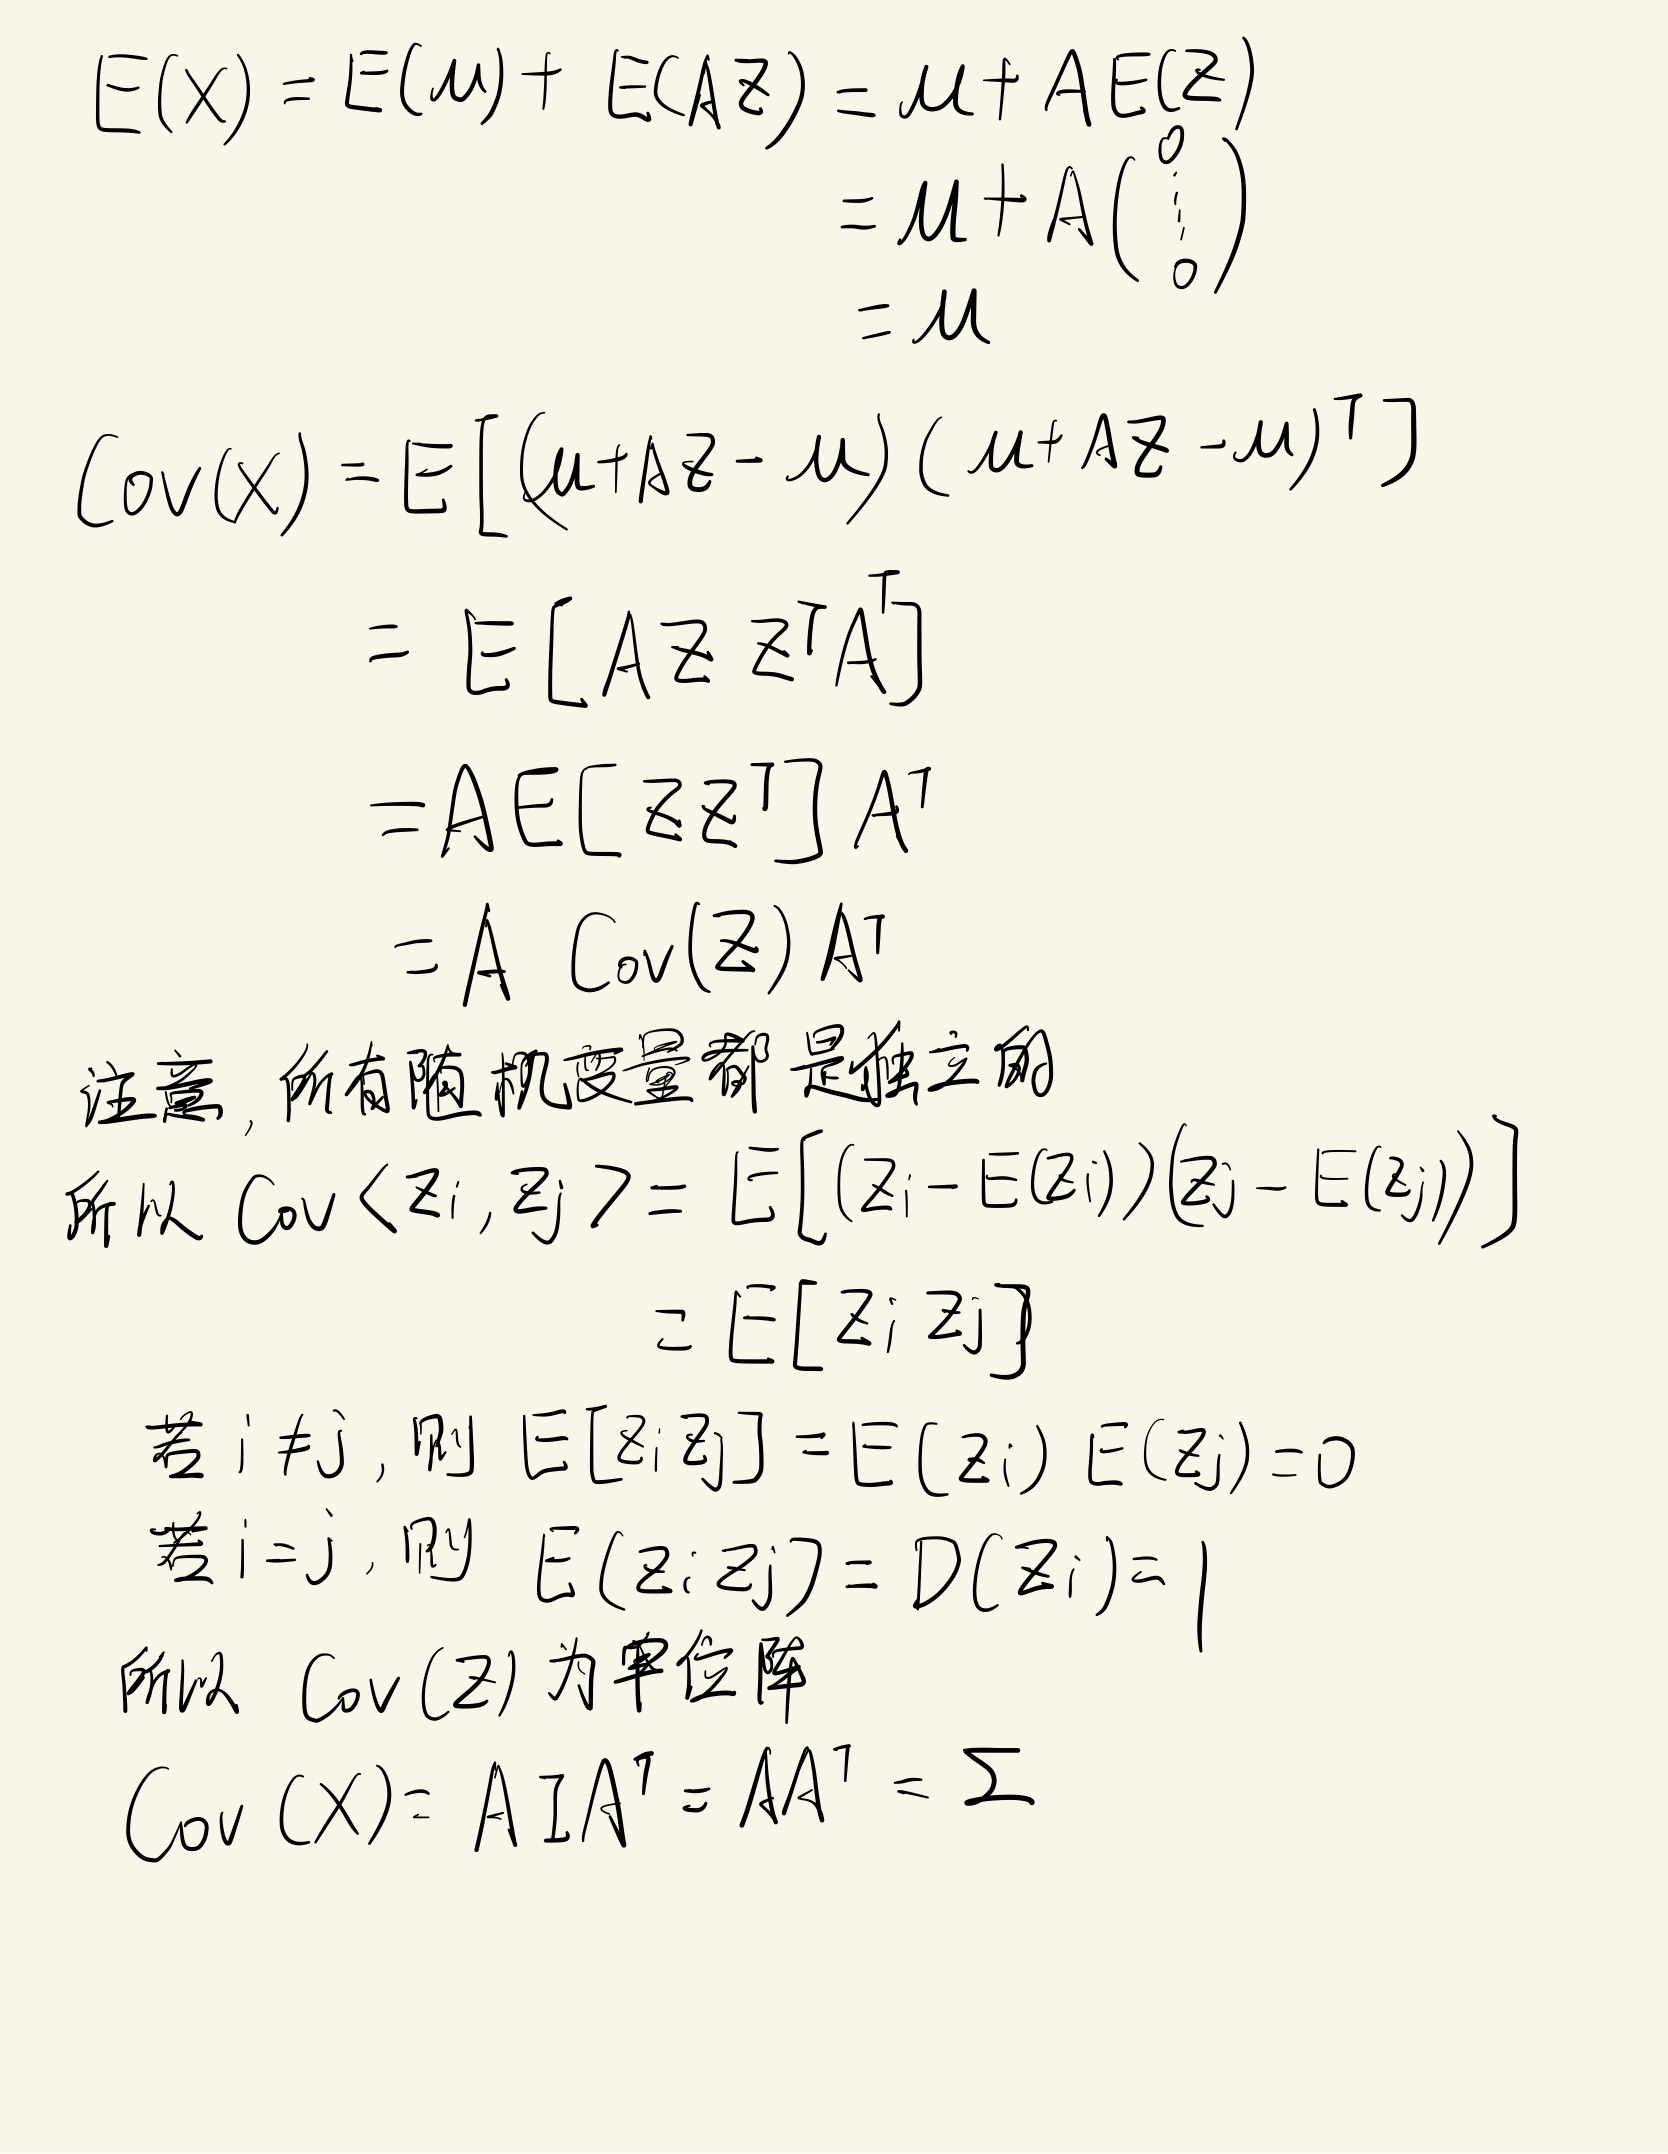 E(X) = E(μ) + E(AZ) = μ + A E(Z)
= μ + A (0 ⋮ 0)
= μ
Cov(X) = E[(μ+AZ-μ)(μ+AZ-μ)ᵀ]
= E[AZ ZᵀAᵀ]
= A E[ZZᵀ] Aᵀ
= A Cov(Z) Aᵀ
注意, 所有随机变量都是独立的
所以 Cov<Zi, Zj> = E[(Zi - E(Zi))(Zj - E(Zj))]
= E[Zi Zj]
若 i ≠ j, 则 E[Zi Zj] = E(Zi) E(Zj) = 0
若 i = j, 则 E(Zi Zj) = D(Zi) = 1
所以 Cov(Z) 为单位阵
Cov(X) = A I Aᵀ = AAᵀ = Σ